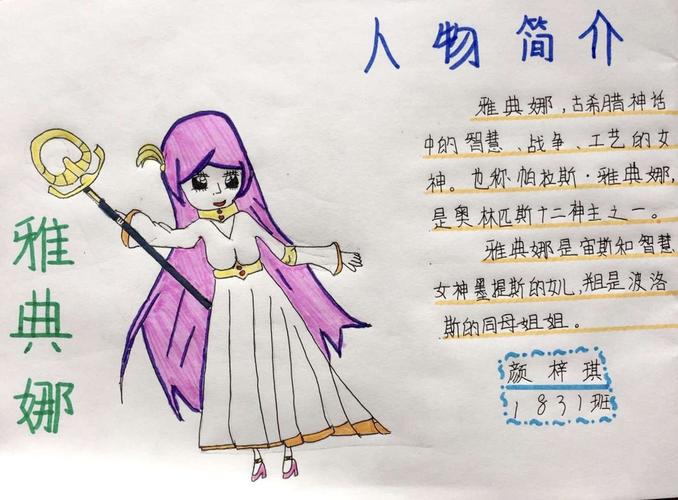 人物简介
雅典娜,古希腊神话
中的智慧、战争、工艺的女
神。也称帕拉斯·雅典娜,
是奥林匹斯十二神主之一。
雅典娜是宙斯和智慧
女神墨提斯的女儿,是波洛
斯的同母姐姐。
颜梓琪
1831班
雅典娜